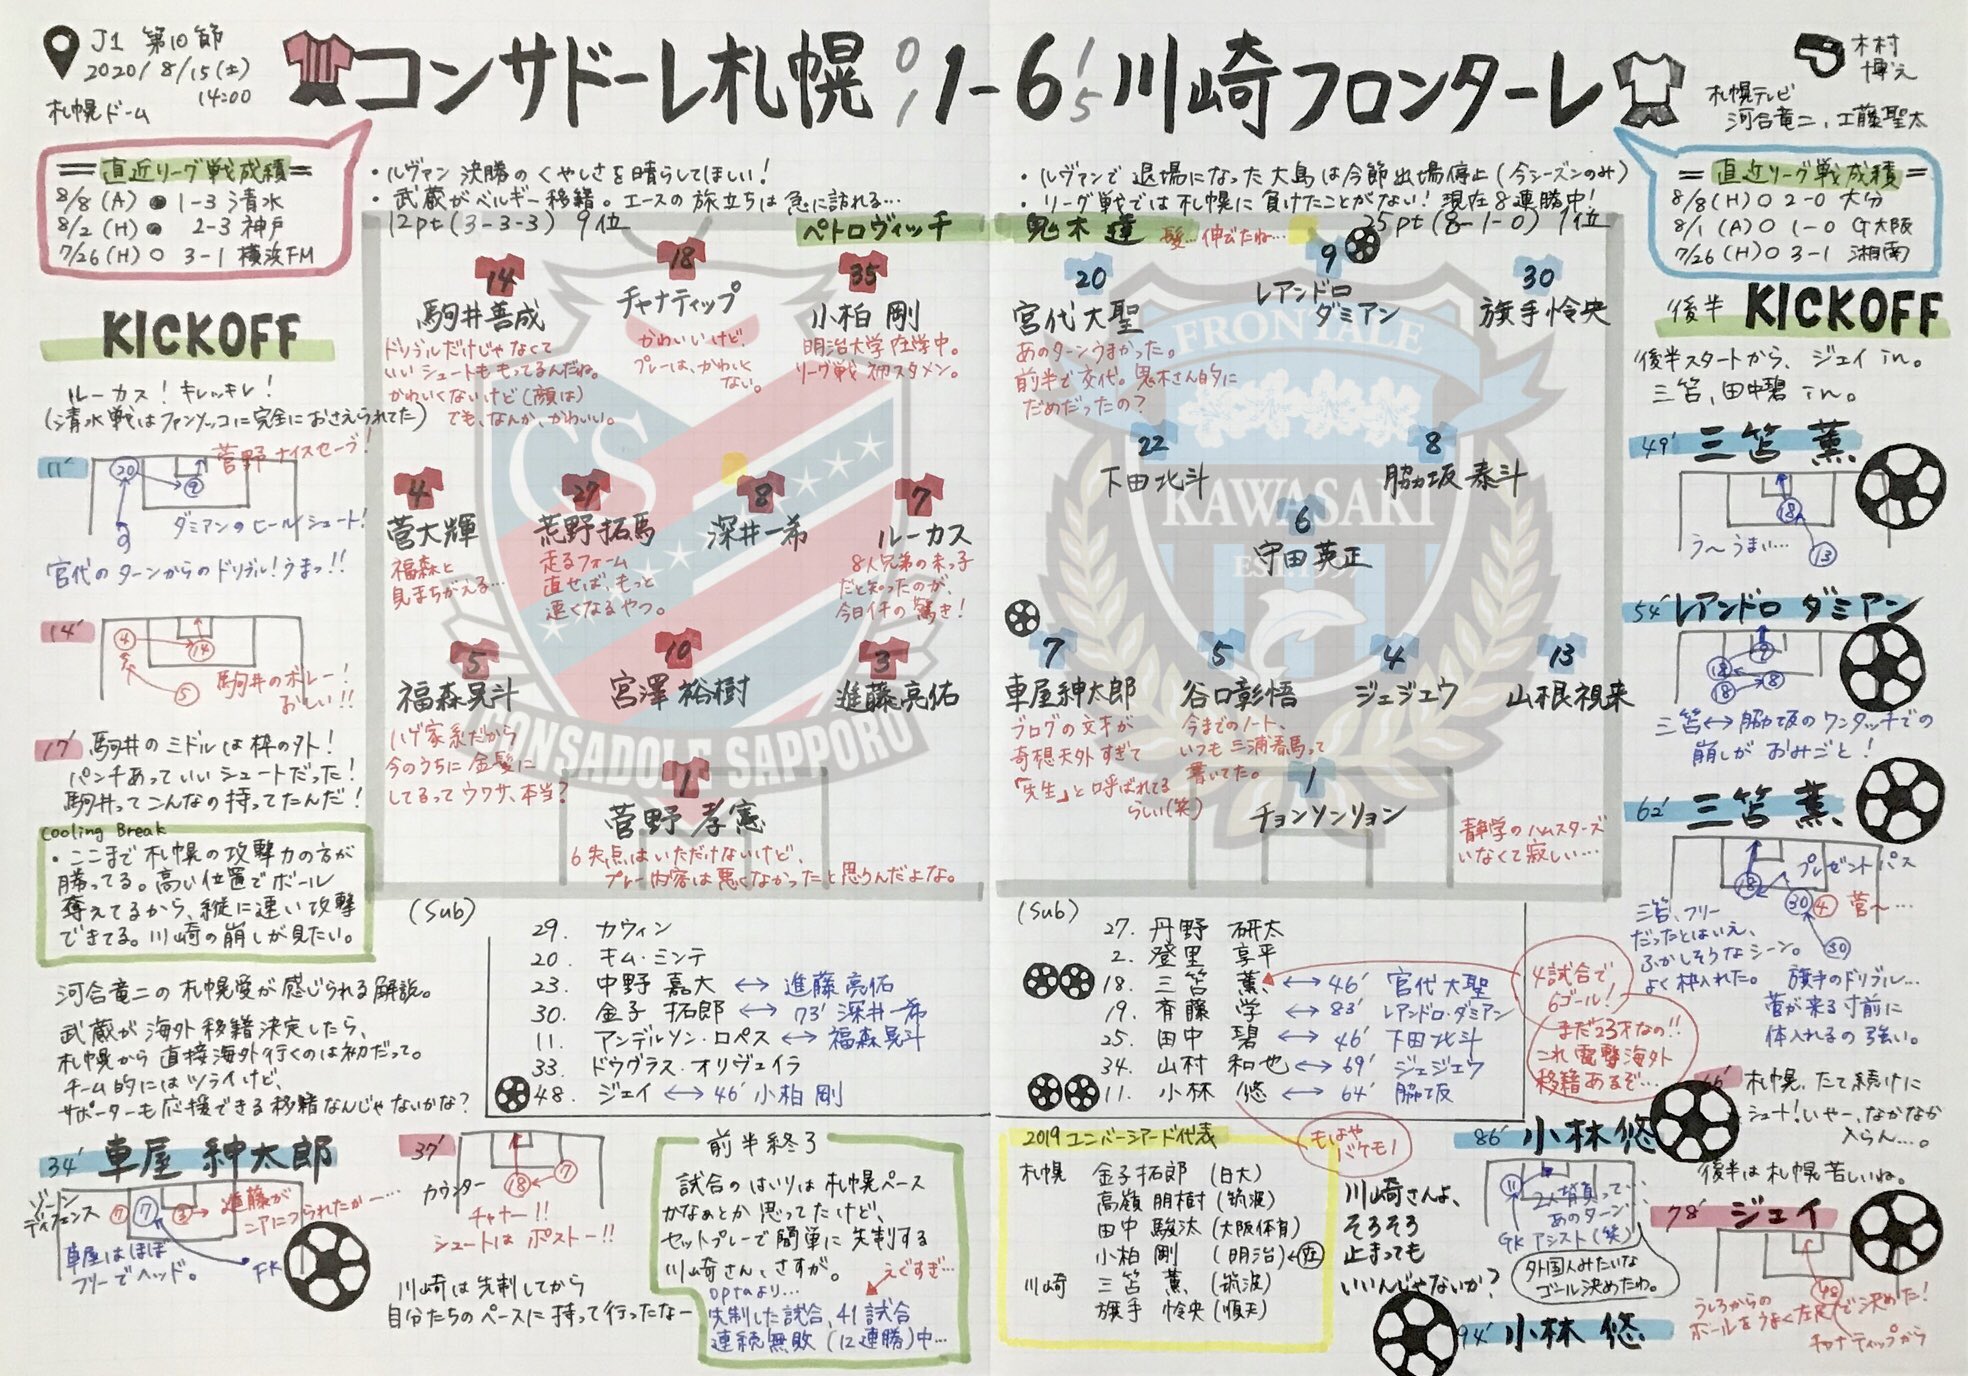 J1 第10節
2020/8/15(土)
14:00
札幌ドーム
コンサドーレ札幌 0 1 1-6 1 5 川崎フロンターレ
木村
博之
札幌テレビ
河合竜二、工藤聖太
=直近リーグ戦成績=
8/8(A)● 1-3 清水
8/2(H)● 2-3 神戸
7/26(H)○ 3-1 横浜FM
・ルヴァン決勝のくやしさを晴らしてほしい!
・武蔵がベルギー移籍。エースの旅立ちは急に訪れる…
12pt(3-3-3) 9位
ペトロヴィッチ
・ルヴァンで退場になった大島は今節出場停止(今シーズンのみ)
・リーグ戦では札幌に負けたことがない!現在8連勝中!
鬼木達 髪…伸びたね…
25pt(8-1-0) 1位
=直近リーグ戦成績=
8/8(H)○ 2-0 大分
8/1(A)○ 1-0 G大阪
7/26(H)○ 3-1 湘南
KICKOFF
ルーカス!キレッキレ!
(清水戦はファンソッコに完全におさえられてた)
11'
菅野ナイスセーブ!
20
9
ダミアンのヒールシュート!
宮代のターンからのドリブル!うまっ!!
14'
4
14
5
駒井のボレー!
おしい!!
17' 駒井のミドルは枠の外!
パンチあっていいシュートだった!
駒井ってこんなの持ってたんだ!
Cooling Break
・ここまで札幌の攻撃力の方が
勝ってる。高い位置でボール
奪えてるから、縦に速い攻撃
できてる。川崎の崩しが見たい。
河合竜二の札幌愛が感じられる解説。
武蔵が海外移籍決定したら、
札幌から直接海外行くのは初だって。
チーム的にはツライけど、
サポーターも応援できる移籍なんじゃないかな?
34' 車屋紳太郎
ゾーン
ディフェンス
7
3
進藤が
ニアにつられたかー…
車屋はほぼ
フリーでヘッド。
FK
37'
カウンター
18
7
チャナー!!
シュートはポストー!!
川崎は先制してから
自分たちのペースに持って行ったなー
14
駒井善成
ドリブルだけじゃなくて
いいシュートももってるんだね。
かわいくないけど(顔は)
でも、なんか、かわいい。
18
チャナティップ
かわいいけど、
プレーは、かわいく
ない。
35
小柏剛
明治大学在学中。
リーグ戦初スタメン。
4
菅大輝
福森と
見まちがえる…
27
荒野拓馬
走るフォーム
直せば、もっと
速くなるやつ。
8
深井一希
7
ルーカス
8人兄弟の末っ子
だと知ったのが、
今日イチの驚き!
5
福森晃斗
ハゲ家系だから
今のうちに金髪に
してるってウワサ、本当?
10
宮澤裕樹
3
進藤亮佑
1
菅野孝憲
6失点はいただけないけど、
プレー内容は悪くなかったと思うんだよな。
CS
CONSADOLE SAPPORO
(Sub)
29. カウィン
20. キム・ミンテ
23. 中野嘉大 ↔ 進藤亮佑
30. 金子拓郎 ↔ 73' 深井一希
11. アンデルソン・ロペス ↔ 福森晃斗
33. ドウグラス・オリヴェイラ
48. ジェイ ↔ 46' 小柏剛
前半終了
試合のはいりは札幌ペース
かなぁとか思ってたけど、
セットプレーで簡単に先制する
川崎さん、さすが。
えぐすぎ…
optaより…
先制した試合、41試合
連続無敗(12連勝)中…
20
宮代大聖
あのターンうまかった。
前半で交代。鬼木さん的に
だめだったの?
9
レアンドロ
ダミアン
30
旗手怜央
22
下田北斗
8
脇坂泰斗
6
守田英正
7
車屋紳太郎
ブログの文才が
奇想天外すぎて
「先生」と呼ばれてる
らしい(笑)
5
谷口彰悟
今までのノート、
いつも三浦春馬って
書いてた。
4
ジェジエウ
13
山根視来
1
チョンソンリョン
静学のハムスターズ
いなくて寂しい…
FRONTALE
KAWASAKI
EST. 1997
(Sub)
27. 丹野研太
2. 登里享平
18. 三笘薫 ↔ 46' 宮代大聖
19. 斉藤学 ↔ 83' レアンドロ・ダミアン
25. 田中碧 ↔ 46' 下田北斗
34. 山村和也 ↔ 69' ジェジエウ
11. 小林悠 ↔ 64' 脇坂
4試合で
6ゴール!
まだ23才なの!!
これ電撃海外
移籍あるぞ…
もはや
バケモノ
2019ユニバーシアード代表
札幌 金子拓郎(日大)
高嶺朋樹(筑波)
田中駿汰(大阪体育)
小柏剛(明治)←在
川崎 三笘薫(筑波)
旗手怜央(順天)
川崎さんよ、
そろそろ
止まっても
いいんじゃないか?
後半 KICKOFF
後半スタートから、ジェイin。
三笘、田中碧in。
49' 三笘薫
18
13
う〜うまい…
54' レアンドロダミアン
9
18
8
18
三笘↔脇坂のワンタッチでの
崩しがおみごと!
62' 三笘薫
プレゼントパス
18
30
4
菅〜…
30
三笘、フリー
だったとはいえ、
ふかしそうなシーン。
よく枠入れた。
旗手のドリブル…
菅が来る寸前に
体入れるの強い。
札幌、たて続けに
シュート!いやー、なかなか
入らん…。
後半は札幌苦しいね。
78' ジェイ
48
うしろからの
ボールをうまく左足で決めた!
チャナティップから
86' 小林悠
11
2人背負って…
あのターン
GKアシスト(笑)
外国人みたいな
ゴール決めたわ。
94' 小林悠